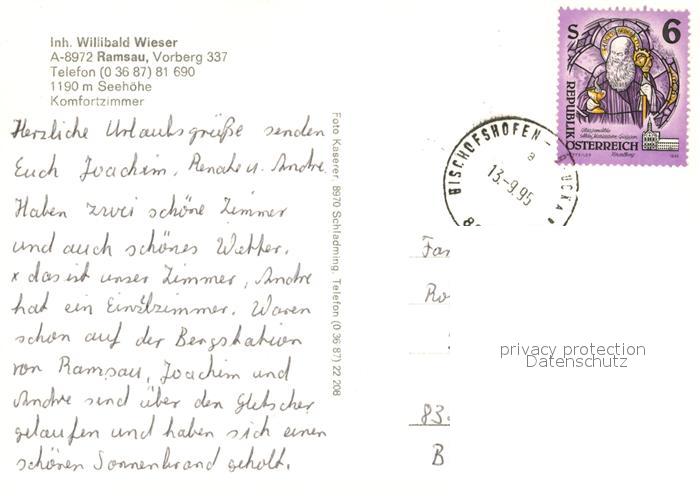 Inh. Willibald Wieser
A-8972 Ramsau, Vorberg 337
Telefon (0 36 87) 81 690
1190 m Seehöhe
Komfortzimmer
Herzliche Urlaubsgrüße senden
Euch Joachim, Renate u. Andre.
Haben zwei schöne Zimmer
und auch schönes Wetter.
x das ist unser Zimmer, Andre
hat ein Einzelzimmer. Waren
schon auf der Bergstation
von Ramsau, Joachim und
Andre sind über den Gletscher
gelaufen und haben sich einen
schönen Sonnenbrand geholt.
Foto Kaserer, 8970 Schladming, Telefon (0 36 87) 22 208
S 6
REPUBLIK
ÖSTERREICH
BISCHOFSHOFEN -
a
13.-9.95
Fa
Ro
83.
B
privacy protection
Datenschutz